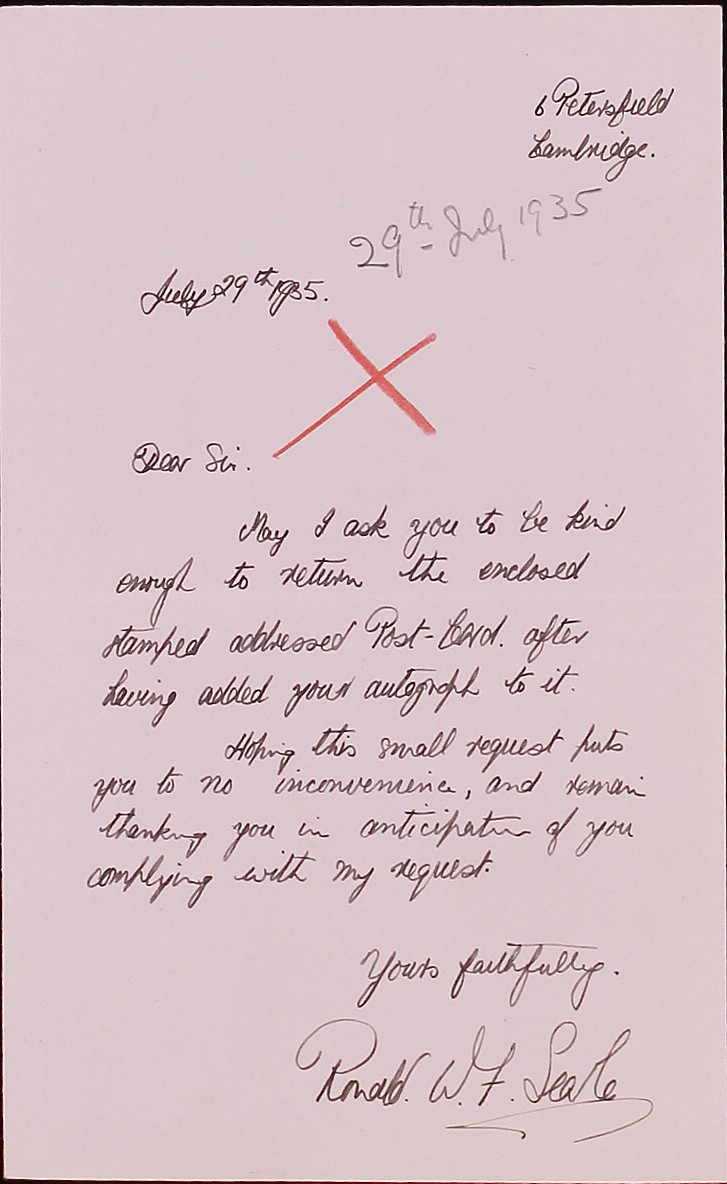 6 Petersfield
Cambridge.
29th July 1935
July 29th 1935.
Dear Sir.
May I ask you to be kind
enough to return the enclosed
stamped addressed Post-Card. after
having added your autograph to it.
Hoping this small request puts
you to no inconvenience, and remain
thanking you in anticipation of you
complying with my request.
Yours faithfully.
Ronald. W. F. Searle